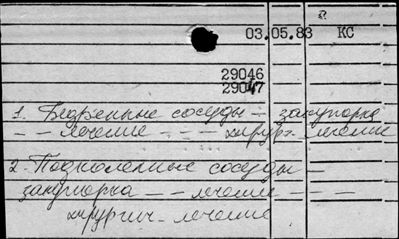 03.05.83 КС
29046
29047
1. Бедренные сосуды – закупорка
– – лечение – – – хирург. лечение
2. Подколенные сосуды –
закупорка – – лечение – – –
хирургич. лечение